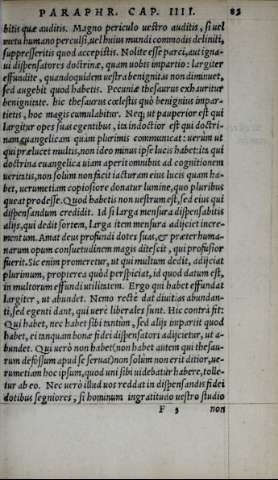 PARAPHR. CAP. IIII. 83
bitis quæ auditis. Magno periculo vestro auditis, si vel
metu humano perculsi, vel huius mundi commodis deliniti,
suppresseritis quod accepistis. Nolite esse parci, aut igna-
ui dispensatores doctrinæ, quam uobis impartio: largiter
effundite, quandoquidem uestra benignitas non diminuet,
sed augebit quod habetis. Pecuniæ thesaurus exhauritur
benignitate. hic thesaurus cœlestis quò benignius impar-
tietis, hoc magis cumulabitur. Neq; ut pauperior est qui
largitur opes suas egentibus, ita indoctior est qui doctri-
nam euangelicam quàm plurimis communicat: uerùm ut
qui prælucet multis, non ideo minus ipse lucis habet: ita qui
doctrina euangelica uiam aperit omnibus ad cognitionem
ueritatis, non solùm non facit iacturam eius lucis quam ha-
bet, uerumetiam copiosiore donatur lumine, quo pluribus
queat prodesse. Quod habetis non uestrum est, sed eius qui
dispensandum credidit. Id si larga mensura dispensabitis
alijs, qui dedit sortem, larga item mensura adijciet incre-
mentum. Amat deus profundi dotes suas, & præter huma-
narum opum consuetudinem magis ditescit, qui profusior
fuerit. Sic enim promeretur, ut qui multum dedit, adijciat
plurimum, propterea quòd perspiciat, id quod datum est,
in multorum effundi utilitatem. Ergo qui habet effundat
largiter, ut abundet. Nemo rectè dat diuitias abundan-
ti, sed egenti dant, qui uerè liberales sunt. Hic contrà fit:
Qui habet, nec habet sibi tantùm, sed alijs impartit quod
habet, ei tanquam bonæ fidei dispensatori adijcietur, ut a-
bundet. Qui uerò non habet (non habet autem qui thesau-
rum defossum apud se seruat) non solùm non erit ditior, ue-
rumetiam hoc ipsum, quod uni sibi uidebatur habere, tolle-
tur ab eo. Nec uerò illud uos reddat in dispensandis fidei
dotibus segniores, si hominum ingratitudo uestro studio
F 3 non